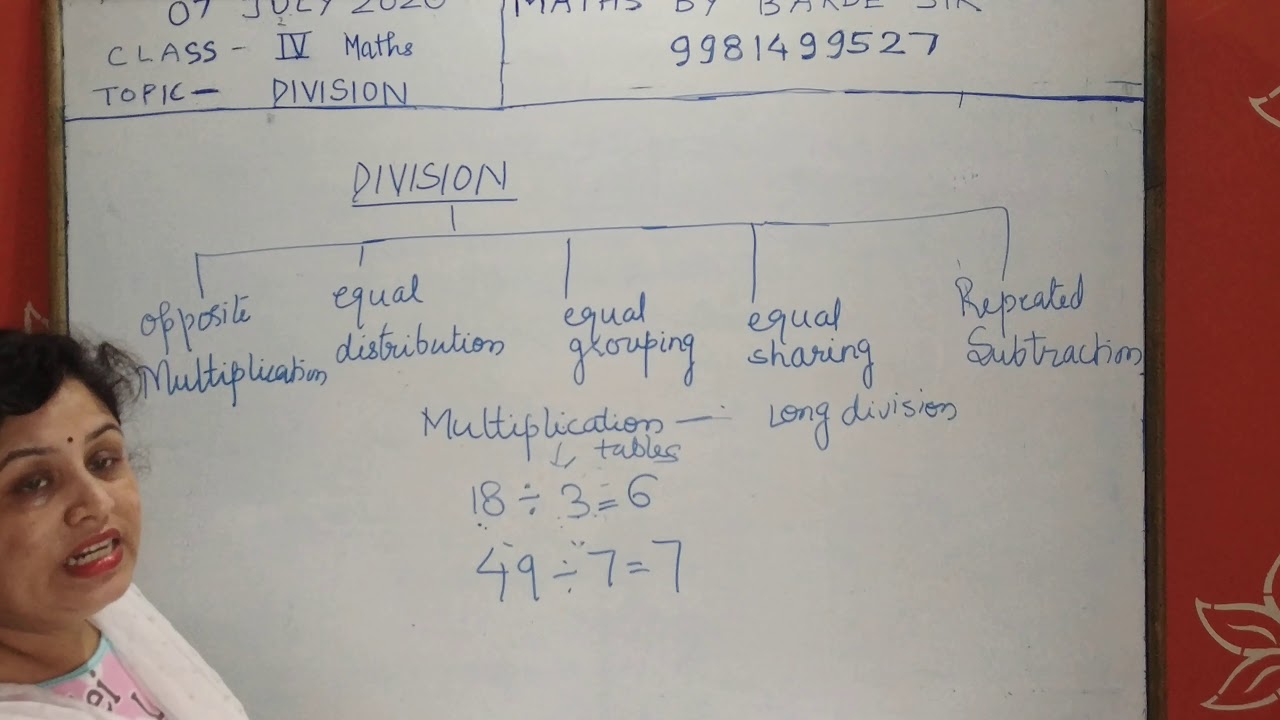 07 JULY 2020
MATHS BY BARDE SIR
CLASS - IV Maths
9981499527
TOPIC - DIVISION
DIVISION
opposite Multiplication
equal distribution
equal grouping
equal sharing
Repeated Subtraction
Multiplication — Long division
↓ tables
18 ÷ 3 = 6
49 ÷ 7 = 7